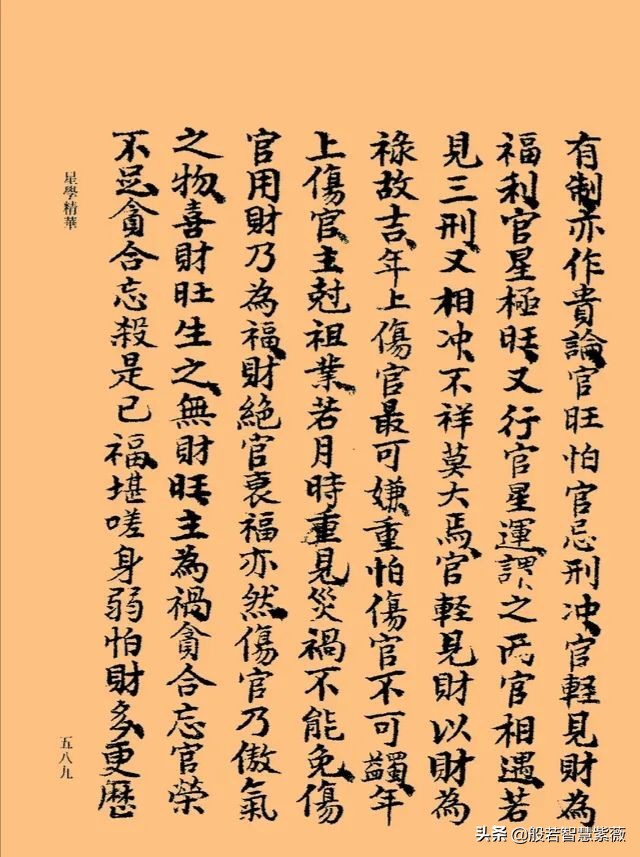 有制亦作貴論官旺怕官忌刑冲官輕見財為
福利官星極旺又行官星運謂之两官相遇若
見三刑又相冲不祥莫大焉官輕見財以財為
祿故吉年上傷官最可嫌重怕傷官不可蠲年
上傷官主尅祖業若月時重見災禍不能免傷
官用財乃為福財絕官衰福亦然傷官乃傲氣
之物喜財旺生之無財旺主為禍貪合忘官榮
不足貪合忘殺是已福堪嗟身弱怕財多更歷
星學精華
五八九
头条 @般若智慧紫薇